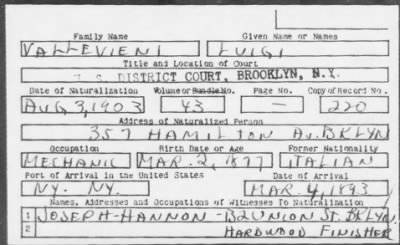 Family Name Given Name or Names
VALLEVIENI LUIGI
Title and Location of Court
U. S. DISTRICT COURT, BROOKLYN, N.Y.
Date of Naturalization Volume or Bundle No. Page No. Copy of Record No.
AUG 3, 1903 43 — 220
Address of Naturalized Person
357 HAMILTON AV. BKLYN
Occupation Birth Date or Age Former Nationality
MECHANIC MAR. 2, 1877 ITALIAN
Port of Arrival in the United States Date of Arrival
NY. NY. MAR. 4, 1893
Names, Addresses and Occupations of Witnesses To Naturalization
1 JOSEPH HANNON - 132 UNION ST. BKLYN.
2 HARDWOOD FINISHER